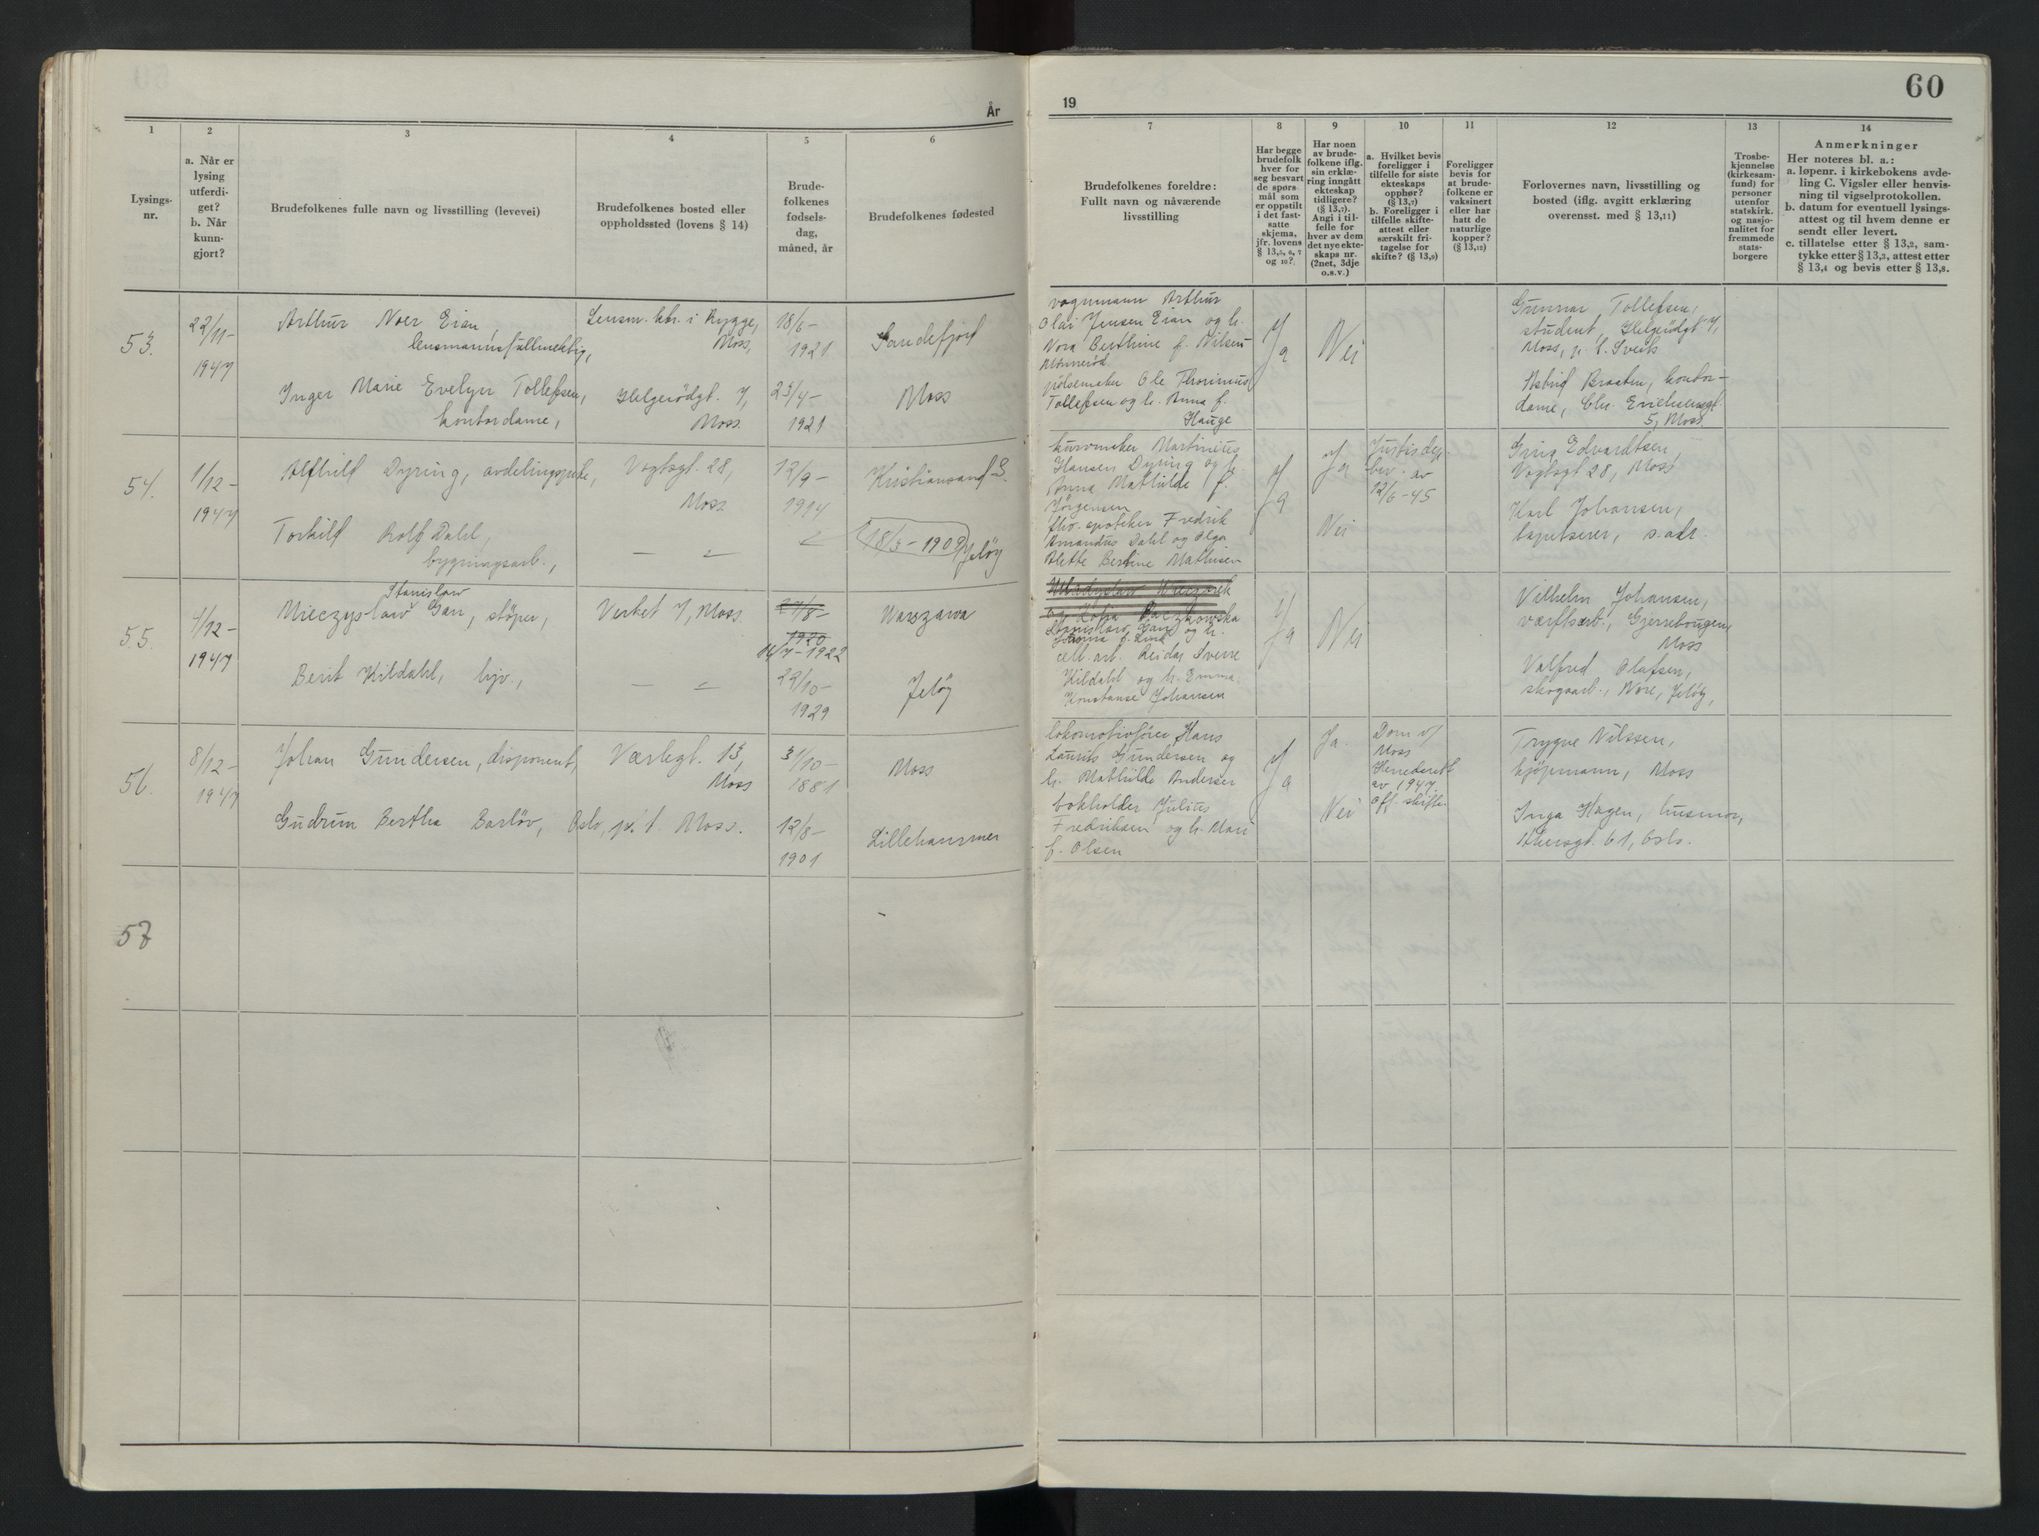 År
1
2
3
4
5
6
Lysings-
nr.
a. Når er
lysing
utferdi-
get?
b. Når
kunn-
gjort?
Brudefolkenes fulle navn og livsstilling (levevei)
Brudefolkenes bosted eller
oppholdssted (lovens § 14)
Brude-
folkenes
fødsels-
dag,
måned, år
Brudefolkenes fødested
53.
22/11-
1947
Arthur Noer Eian,
lensmannsfullmektig,
Lensm.ktr. i Rygge,
Moss,
18/6-
1921
Sandefjord
Inger Marie Evelyn Tollefsen,
kontordame,
Helgerödgt. 7,
Moss.
25/4-
1921
Moss
54.
1/12-
1947
Alfhild Dyring, avdelingssjefe,
Vogtsgt. 28,
Moss
12/9-
1914
Kristiansand S.
Torkild Rolf Dahl,
bygningsarb.,
— " —
18/3-1909
Jeløy
55.
4/12-
1947
Stanislaw
Mieczyslaw Gan, støper,
Verket 7, Moss.
27/8-
1920
14/7-1922
Warszawa
Berit Kildahl, hjv.,
— " —
22/10-
1929
Jeløy
56.
8/12-
1947
Johan Gundersen, disponent,
Værlegt. 13,
Moss
31/10-
1881
Moss
Gudrun Bertha Barløv,
Oslo, p.t. Moss.
12/8-
1901
Lillehammer
57
19
60
7
8
9
10
11
12
13
14
Brudefolkenes foreldre:
Fullt navn og nåværende
livsstilling
Har begge
brudefolk
hver for
seg besvart
de spørs-
mål som
er oppstilt
i det fast-
satte
skjema,
jfr. lovens
§ 13,5, 6, 7
og 10?
Har noen
av brude-
folkene iflg.
sin erklæ-
ring inngått
ekteskap
tidligere?
(§ 13,7).
Angi i til-
felle for
hver av dem
det nye ekte-
skaps nr.
(2net, 3dje
o.s.v.)
a. Hvilket bevis
foreligger i
tilfelle for siste
ekteskaps
opphør?
(§ 13,7)
b. Foreligger i
tilfelle skifte-
attest eller
særskilt fri-
tagelse for
skifte? (§ 13,9)
Foreligger
bevis for
at brude-
folkene er
vaksinert
eller har
hatt de
naturlige
kopper?
(§ 13,12)
Forlovernes navn, livsstilling og
bosted (iflg. avgitt erklæring
overensst. med § 13,11)
Trosbe-
kjennelse
(kirkesam-
fund) for
personer
utenfor
statskirk.
og nasjo-
nalitet for
fremmede
stats-
borgere
Anmerkninger
Her noteres bl. a.:
a. løpenr. i kirkebokens avde-
ling C. Vigsler eller henvis-
ning til vigselprotokollen.
b. datum for eventuell lysings-
attest og til hvem denne er
sendt eller levert.
c. tillatelse etter § 13,2, sam-
tykke etter § 13,3, attest etter
§ 13,4 og bevis etter § 13,8.
vognmann Arthur
Olai Jensen Eian og h.
Nora Berthine f. Nilsen
pølsemaker Ole Thorinius
Tollefsen og h. Anna f.
Hauge
Ja
Nei
Gunnar Tollefsen,
student, Helgerödgt 7,
Moss, p. t. Sveits
Astrid Braaten, kontor-
dame, Chr. Eriksensgt.
5, Moss.
kurvmaker Martinius
Hansen Dyring og h.
Anna Mathilde f.
Jørgensen
fhv. apoteker Fredrik
Amandus Dahl og Olga
Alette Bertine Mathisen
Ja
Ja
Nei
Justisdep.
bev. av
12/6-45
Edvardtsen,
Vogtsgt 28, Moss
Karl Johansen,
tapetserer, s. adr.
Stanislaw Gan og h.
cell. arb. Reidar Sverre
Kildahl og h. Emma
Konstanse Johansen
Ja
Nei
Vilhelm Johansen,
værftsarb.,
Moss
Valfred Olafsen,
skogsarb., Nore, Jeløy,
lokomotivfører Hans
Laurits Gundersen og
h. Mathilde Andersen
bokholder Julius
Fredriksen og h. Mari
f. Olsen
Ja
Ja.
Nei
Dom v/
Moss
Herredsrett
av 1947.
Off. skifte
Trygve Nilssen,
kjøpmann, Moss
Inga Hagen, husmor,
Akersgt. 61, Oslo.